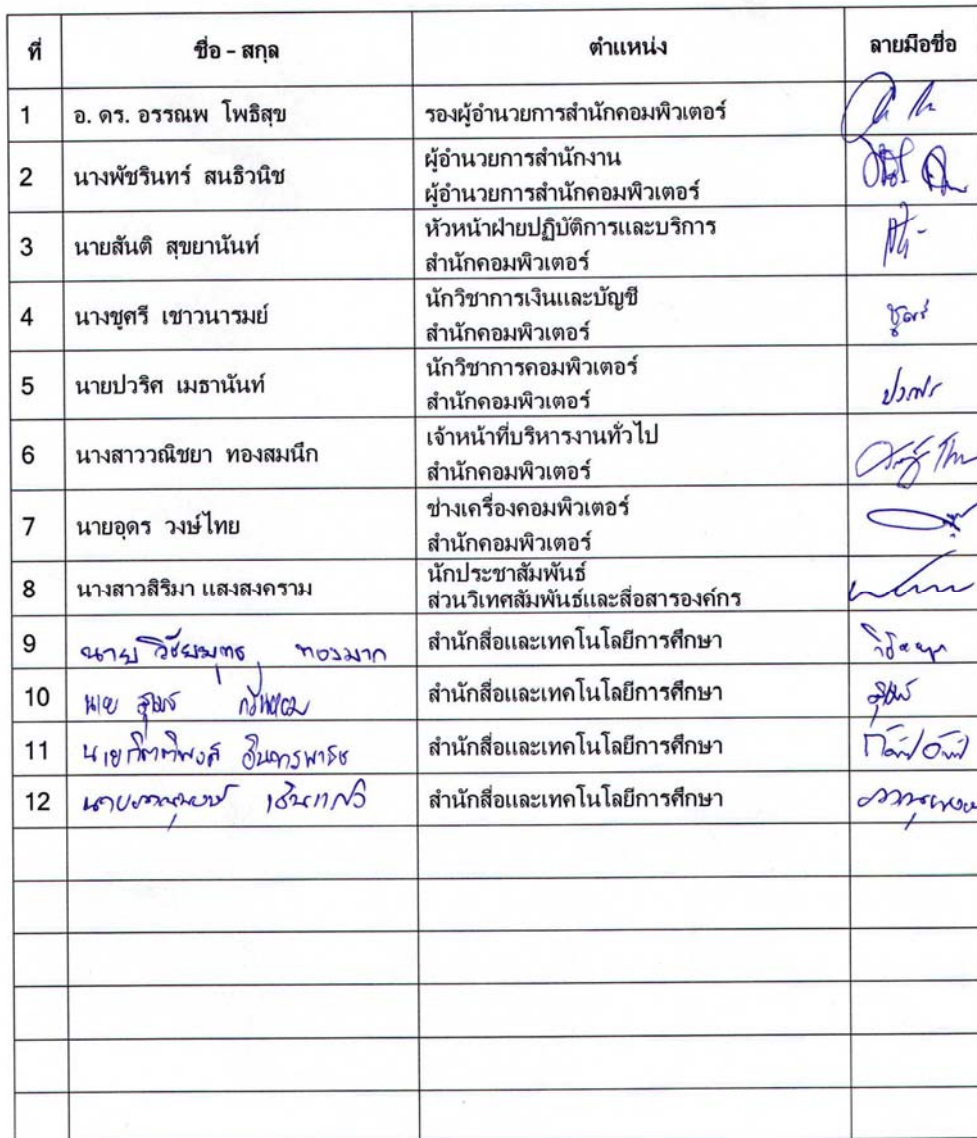 ที่ ชื่อ - สกุล ตำแหน่ง ลายมือชื่อ
1 อ. ดร. อรรณพ โพธิสุข รองผู้อำนวยการสำนักคอมพิวเตอร์
2 นางพัชรินทร์ สนธิวนิช ผู้อำนวยการสำนักงาน
ผู้อำนวยการสำนักคอมพิวเตอร์
3 นายสันติ สุขยานันท์ หัวหน้าฝ่ายปฏิบัติการและบริการ
สำนักคอมพิวเตอร์
4 นางชุศรี เชาวนารมย์ นักวิชาการเงินและบัญชี
สำนักคอมพิวเตอร์
5 นายปวริศ เมธานันท์ นักวิชาการคอมพิวเตอร์
สำนักคอมพิวเตอร์
6 นางสาววณิชยา ทองสมนึก เจ้าหน้าที่บริหารงานทั่วไป
สำนักคอมพิวเตอร์
7 นายอุดร วงษ์ไทย ช่างเครื่องคอมพิวเตอร์
สำนักคอมพิวเตอร์
8 นางสาวสิริมา แสงสงคราม นักประชาสัมพันธ์
ส่วนวิเทศสัมพันธ์และสื่อสารองค์กร
9 นาย ทองมาก สำนักสื่อและเทคโนโลยีการศึกษา
10 นาย สำนักสื่อและเทคโนโลยีการศึกษา
11 นายกิตติพงศ์ สำนักสื่อและเทคโนโลยีการศึกษา
12 นาย สำนักสื่อและเทคโนโลยีการศึกษา